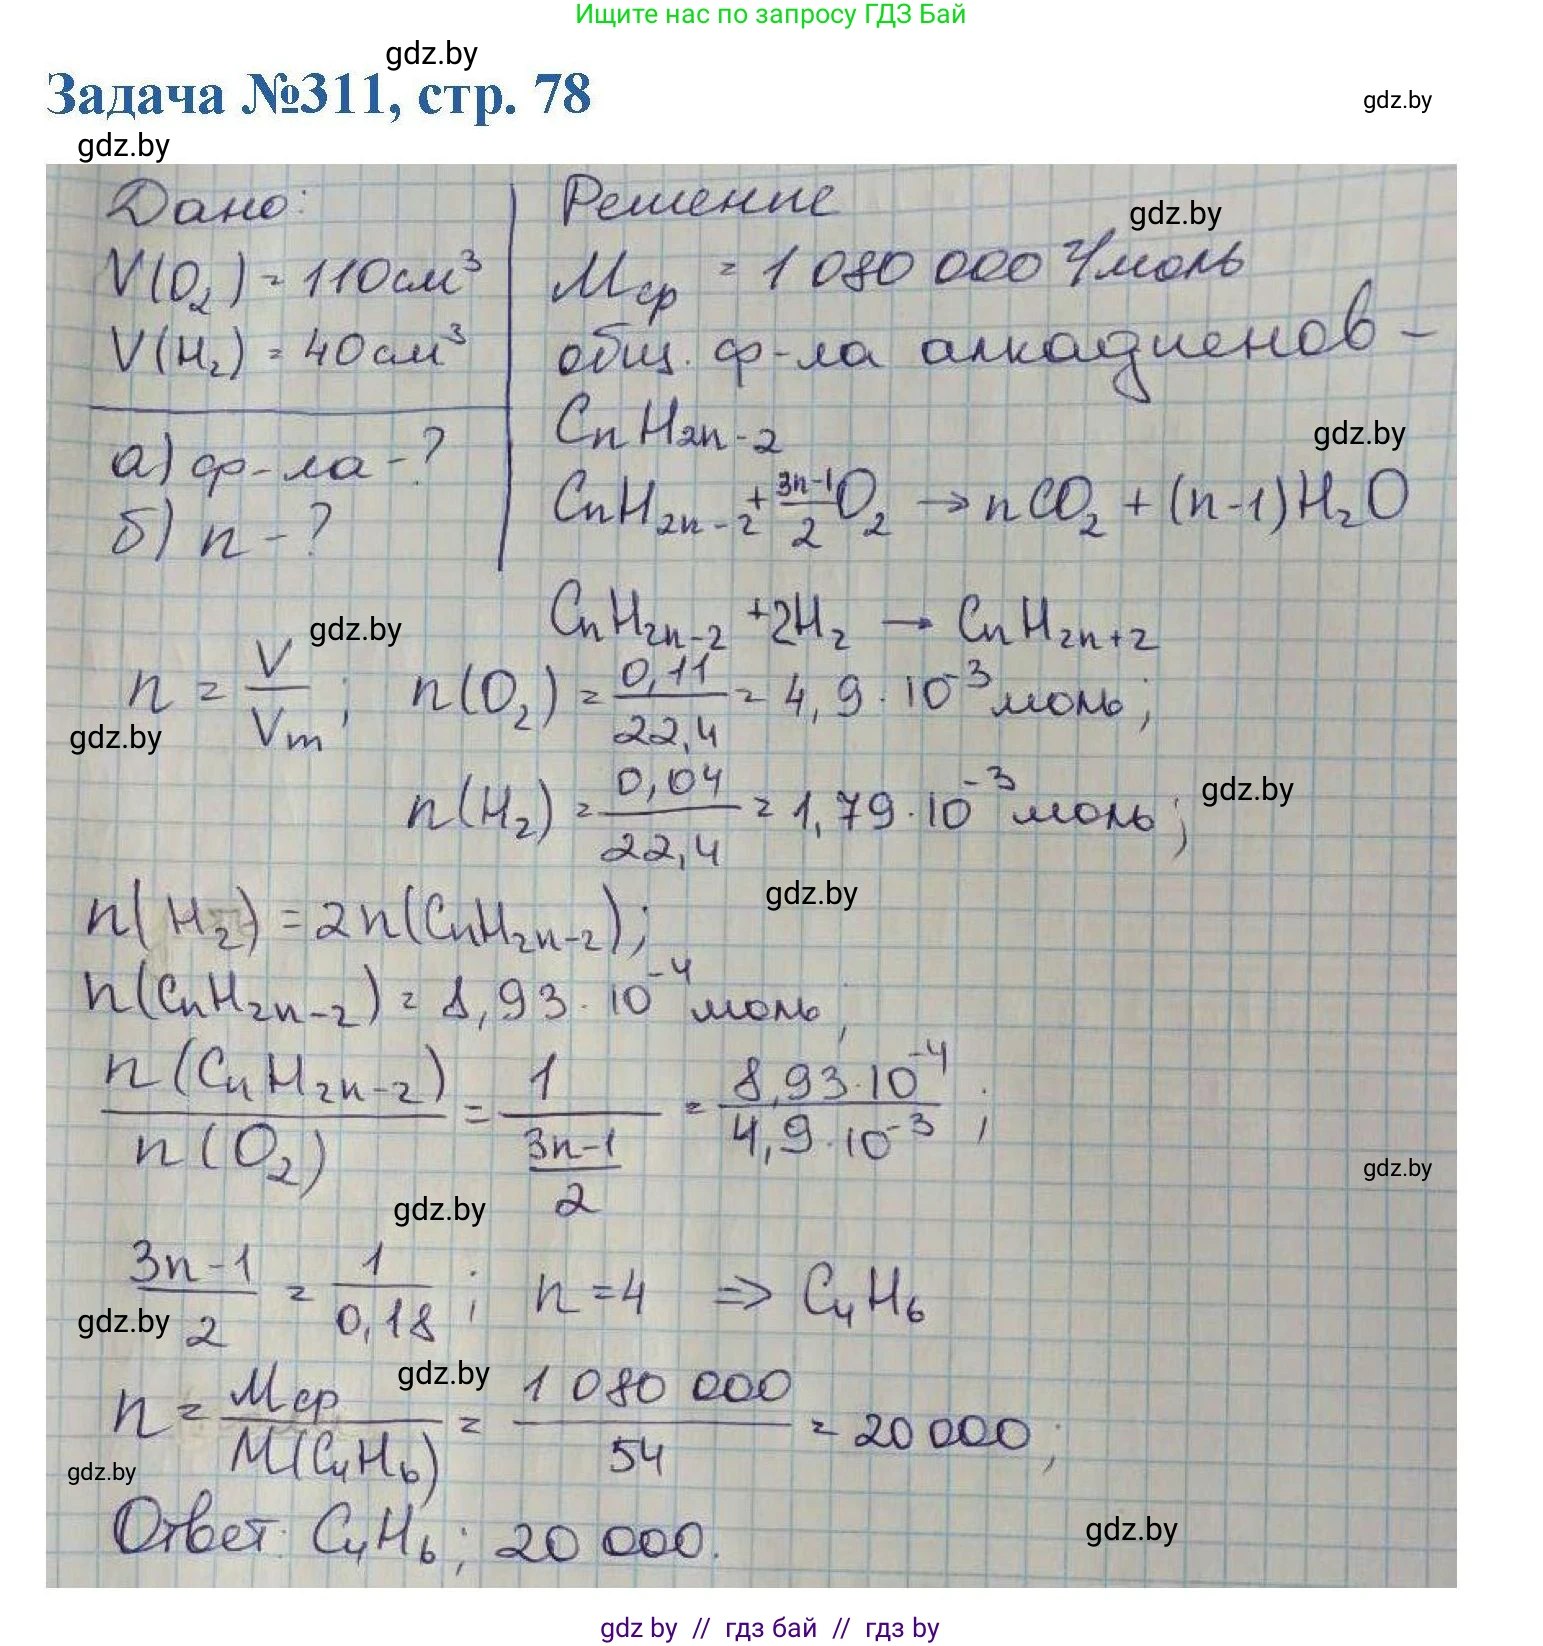 Ищите нас по запросу ГДЗ Бай
gdz.by
Задача №311, стр. 78
gdz.by
gdz.by
Дано:
V(O₂) = 110 см³
V(H₂) = 40 см³
а) ф-ла - ?
б) n - ?
Решение
gdz.by
Mср = 1 080 000 г/моль
общ. ф-ла алкадиенов –
CnH2n-2
gdz.by
CnH2n-2 + (3n-1)/2 O₂ → nCO₂ + (n-1)H₂O
CnH2n-2 + 2H₂ → CnH2n+2
gdz.by
n = V/Vm; n(O₂) = 0,11/22,4 = 4,9 · 10⁻³ моль;
gdz.by
n(H₂) = 0,04/22,4 = 1,79 · 10⁻³ моль;
gdz.by
gdz.by
n(H₂) = 2n(CnH2n-2);
n(CnH2n-2) = 8,93 · 10⁻⁴ моль;
n(CnH2n-2)/n(O₂) = 1/((3n-1)/2) = 8,93·10⁻⁴/4,9·10⁻³;
gdz.by
gdz.by
(3n-1)/2 = 1/0,18; n = 4 => C₄H₆
gdz.by
gdz.by
n = Mср/M(C₄H₆) = 1 080 000/54 = 20 000;
gdz.by
Ответ: C₄H₆; 20 000.
gdz.by
gdz by // гдз бай // гдз by